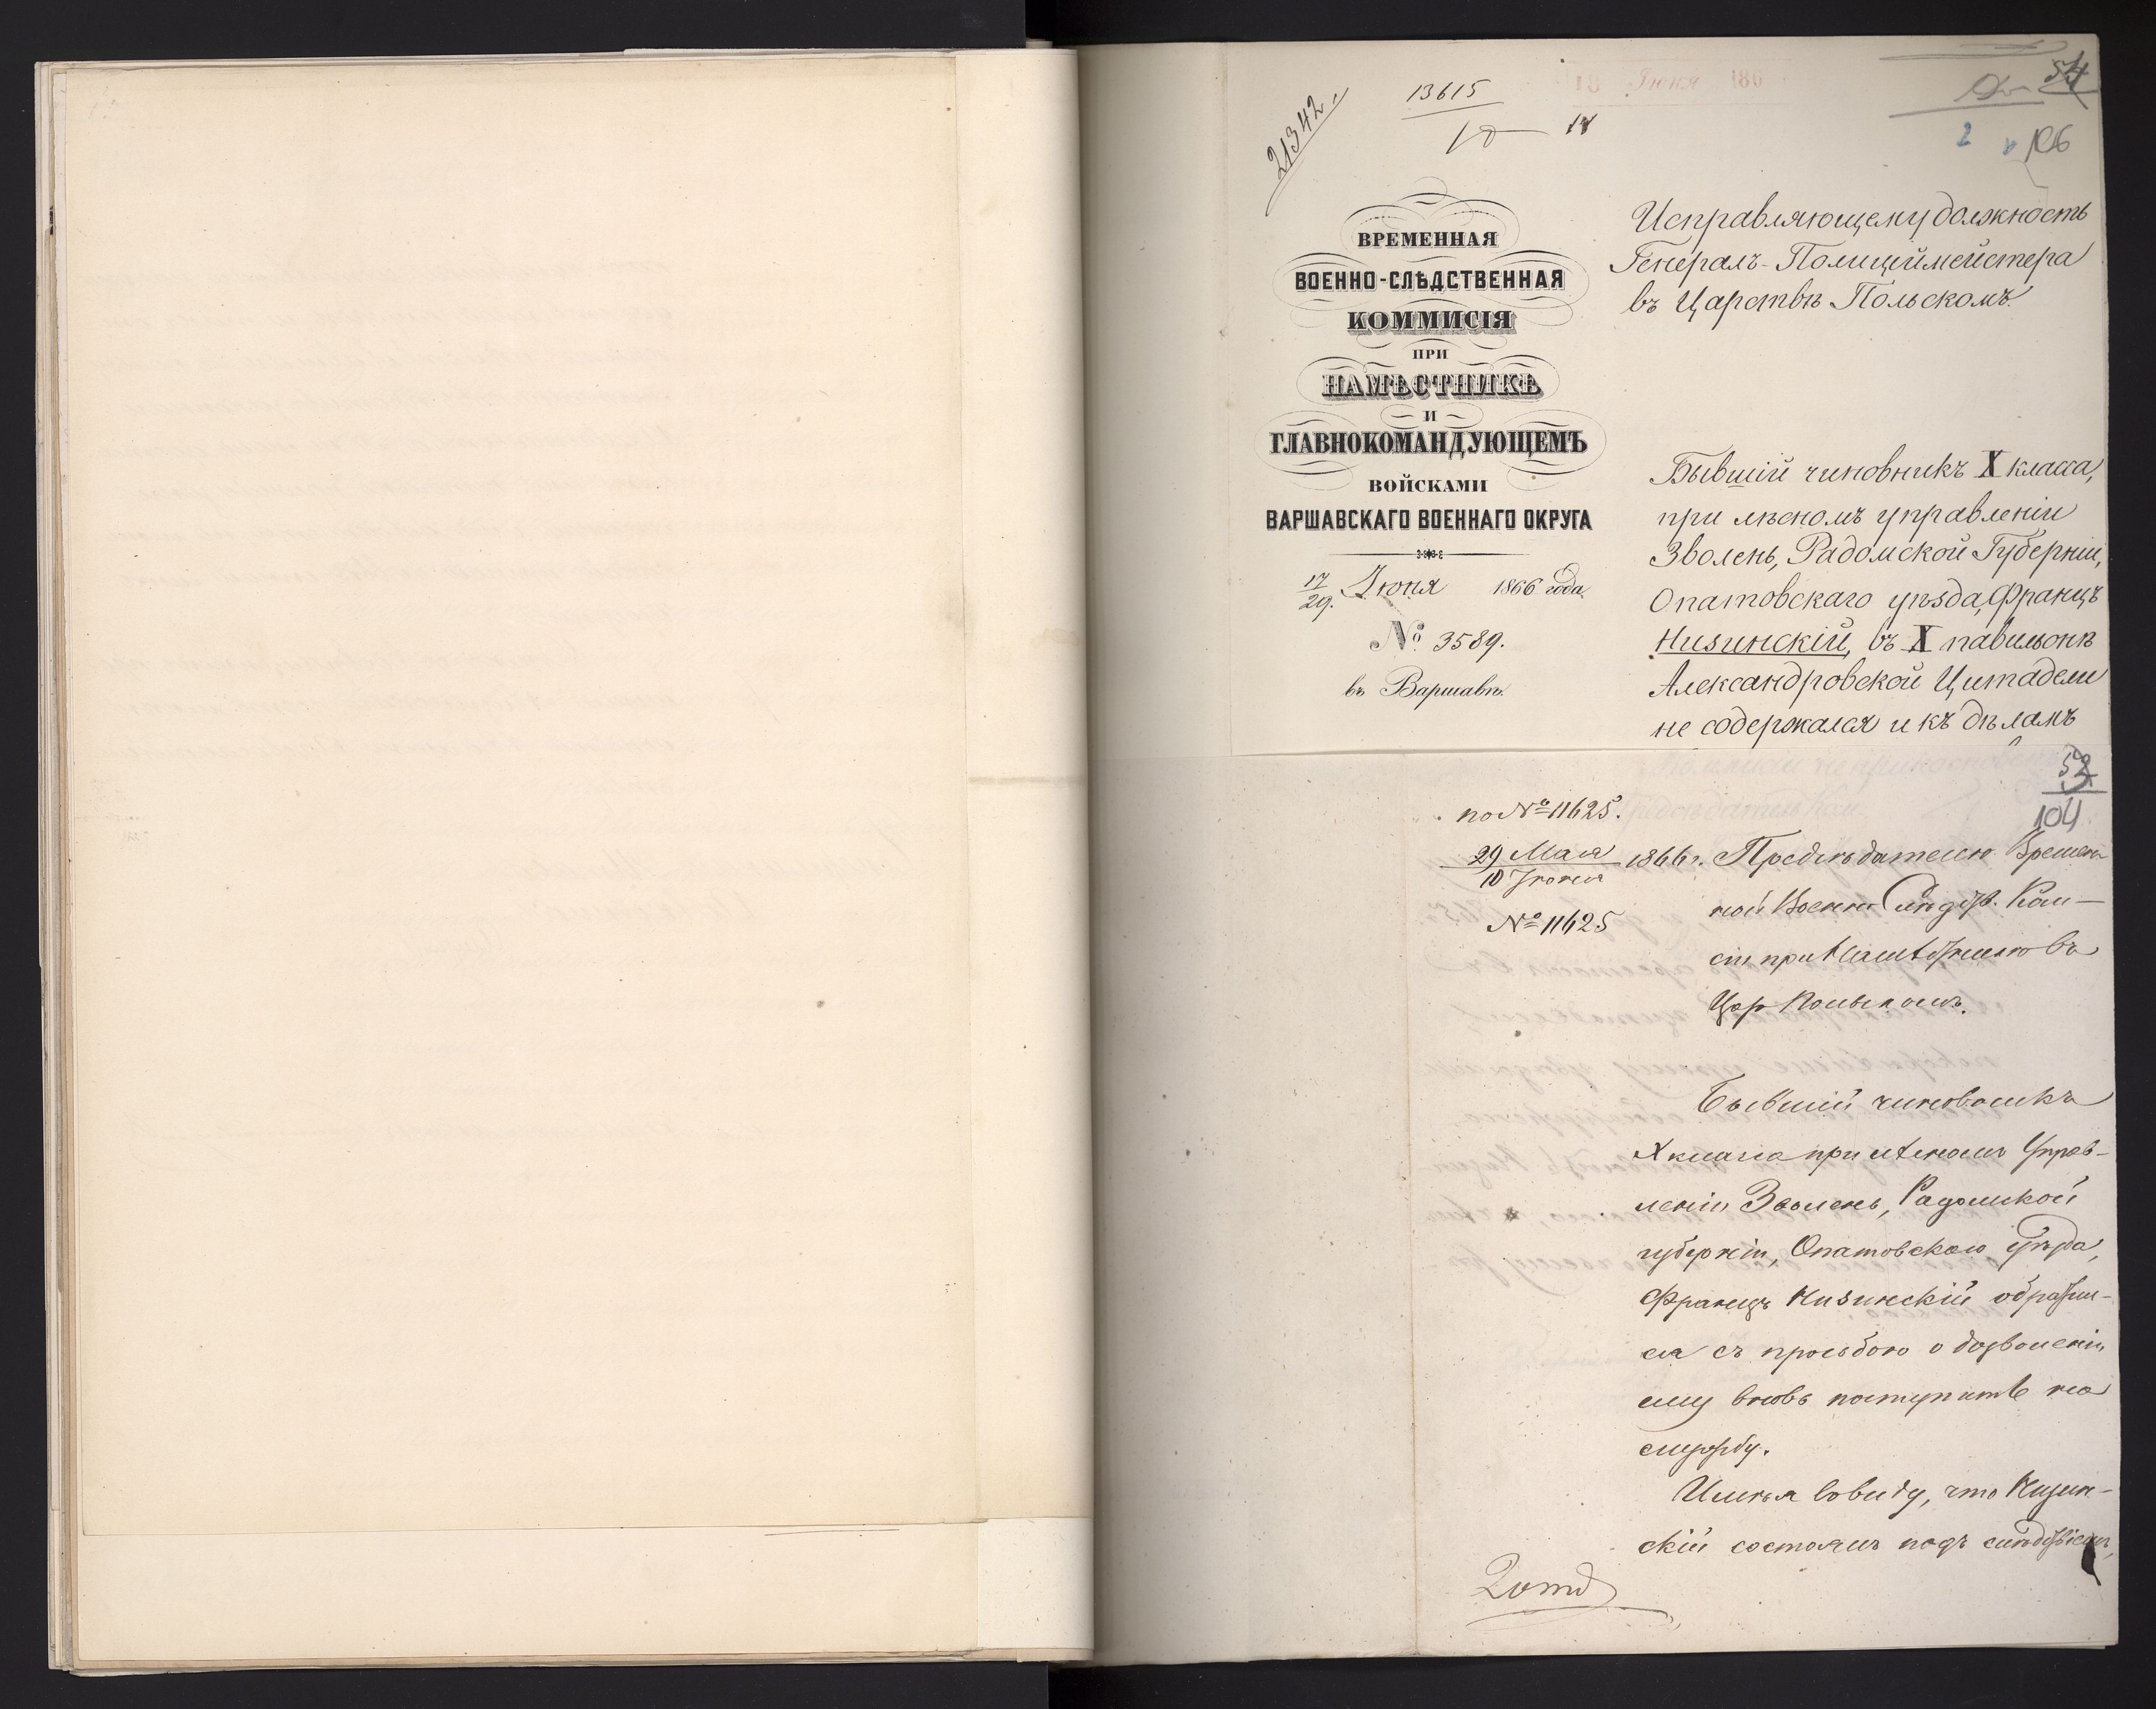 21342.
13615
18 Июня 186
54
106
ВРЕМЕННАЯ
ВОЕННО-СЛѢДСТВЕННАЯ
КОММИСІЯ
ПРИ
НАМѢСТНИКѢ
И
ГЛАВНОКОМАНДУЮЩЕМЪ
ВОЙСКАМИ
ВАРШАВСКАГО ВОЕННАГО ОКРУГА
17/29. Іюня 1866 года
№ 3589.
въ Варшавѣ.
Исправляющему должность
Генералъ-Полицеймейстера
въ Царствѣ Польскомъ.
Бывшій чиновникъ X класса,
при лѣсномъ управленіи
Зволень, Радомской Губерніи,
Опатовскаго уѣзда, Францъ
Низинскій, въ X павильонѣ
Александровской Цитадели
не содержался и къ дѣламъ
53
104
по № 11625.
29 Мая
10 Іюня 1866 г.
№ 11625
Предсѣдателю Времен-
ной Военно Слѣдств. Ком-
сіи при Намѣстникѣ въ
Цар Польскомъ.
Бывшій чиновникъ
X класса при лѣсномъ Управ-
леніи Зволень, Радомской
губерніи, Опатовскаго уѣзда,
Францъ Низинскій обратил-
ся съ просьбою о дозволеніи
ему вновь поступить на
службу.
Имѣя ввиду, что Низин-
скій состоялъ подъ слѣдствіемъ,
2 отд